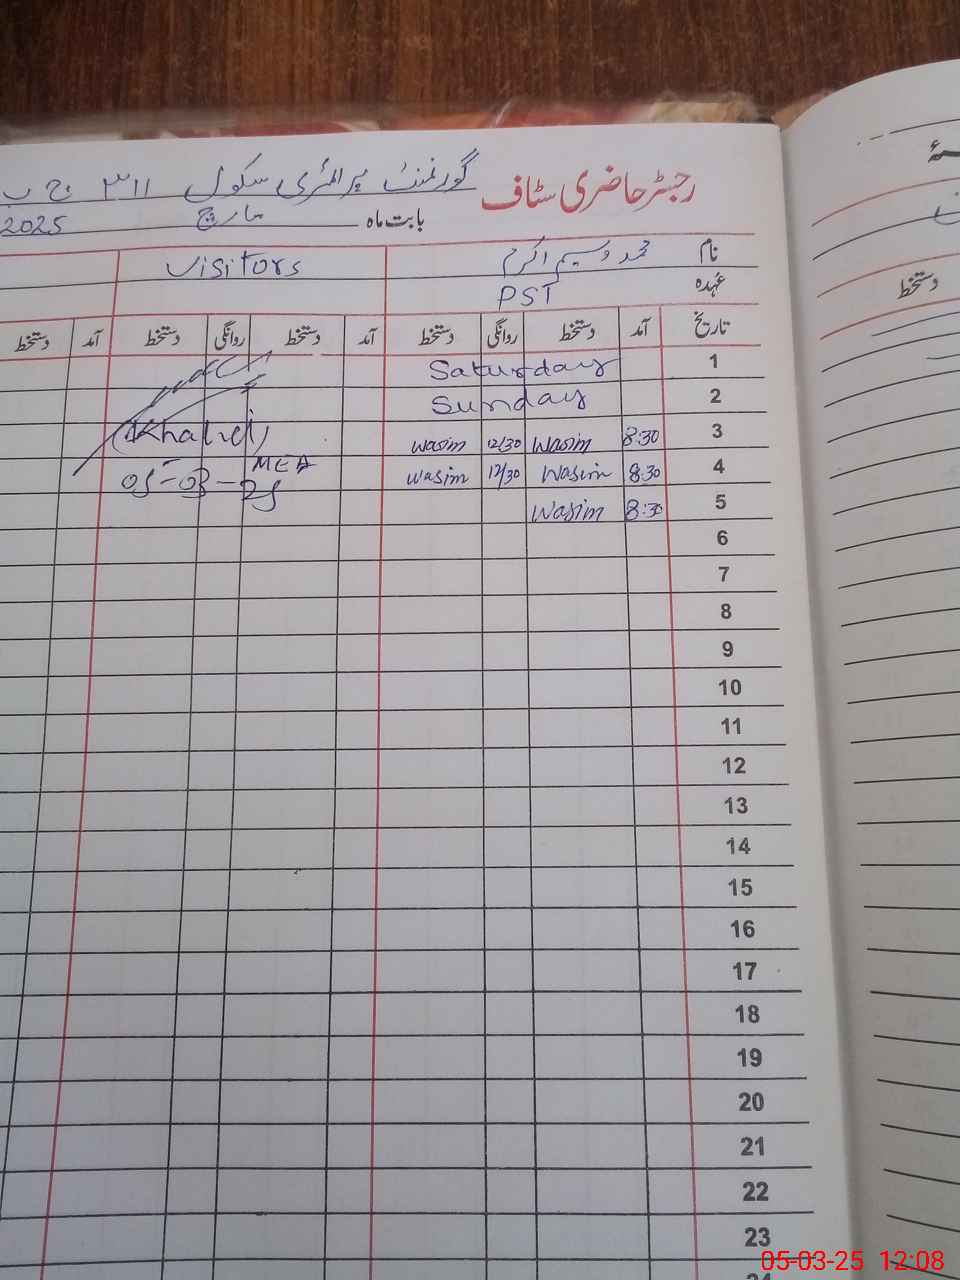 رجسٹر حاضری سٹاف گورنمنٹ پرائمری سکول ۳۱۱ ج ب
بابت ماہ مارچ 2025
نام محمد وسیم اکرم Visitors
عہدہ PST
تاریخ آمد دستخط روانگی دستخط آمد دستخط روانگی دستخط آمد دستخط
1 Saturday
2 Sunday
3 8:30 Wasim 12/30 Wasim (Khalid)
4 8:30 Wasim 12/30 Wasim MEA 05-03-25
5 8:30 Wasim
6
7
8
9
10
11
12
13
14
15
16
17
18
19
20
21
22
23
دستخط
05-03-25 12:08